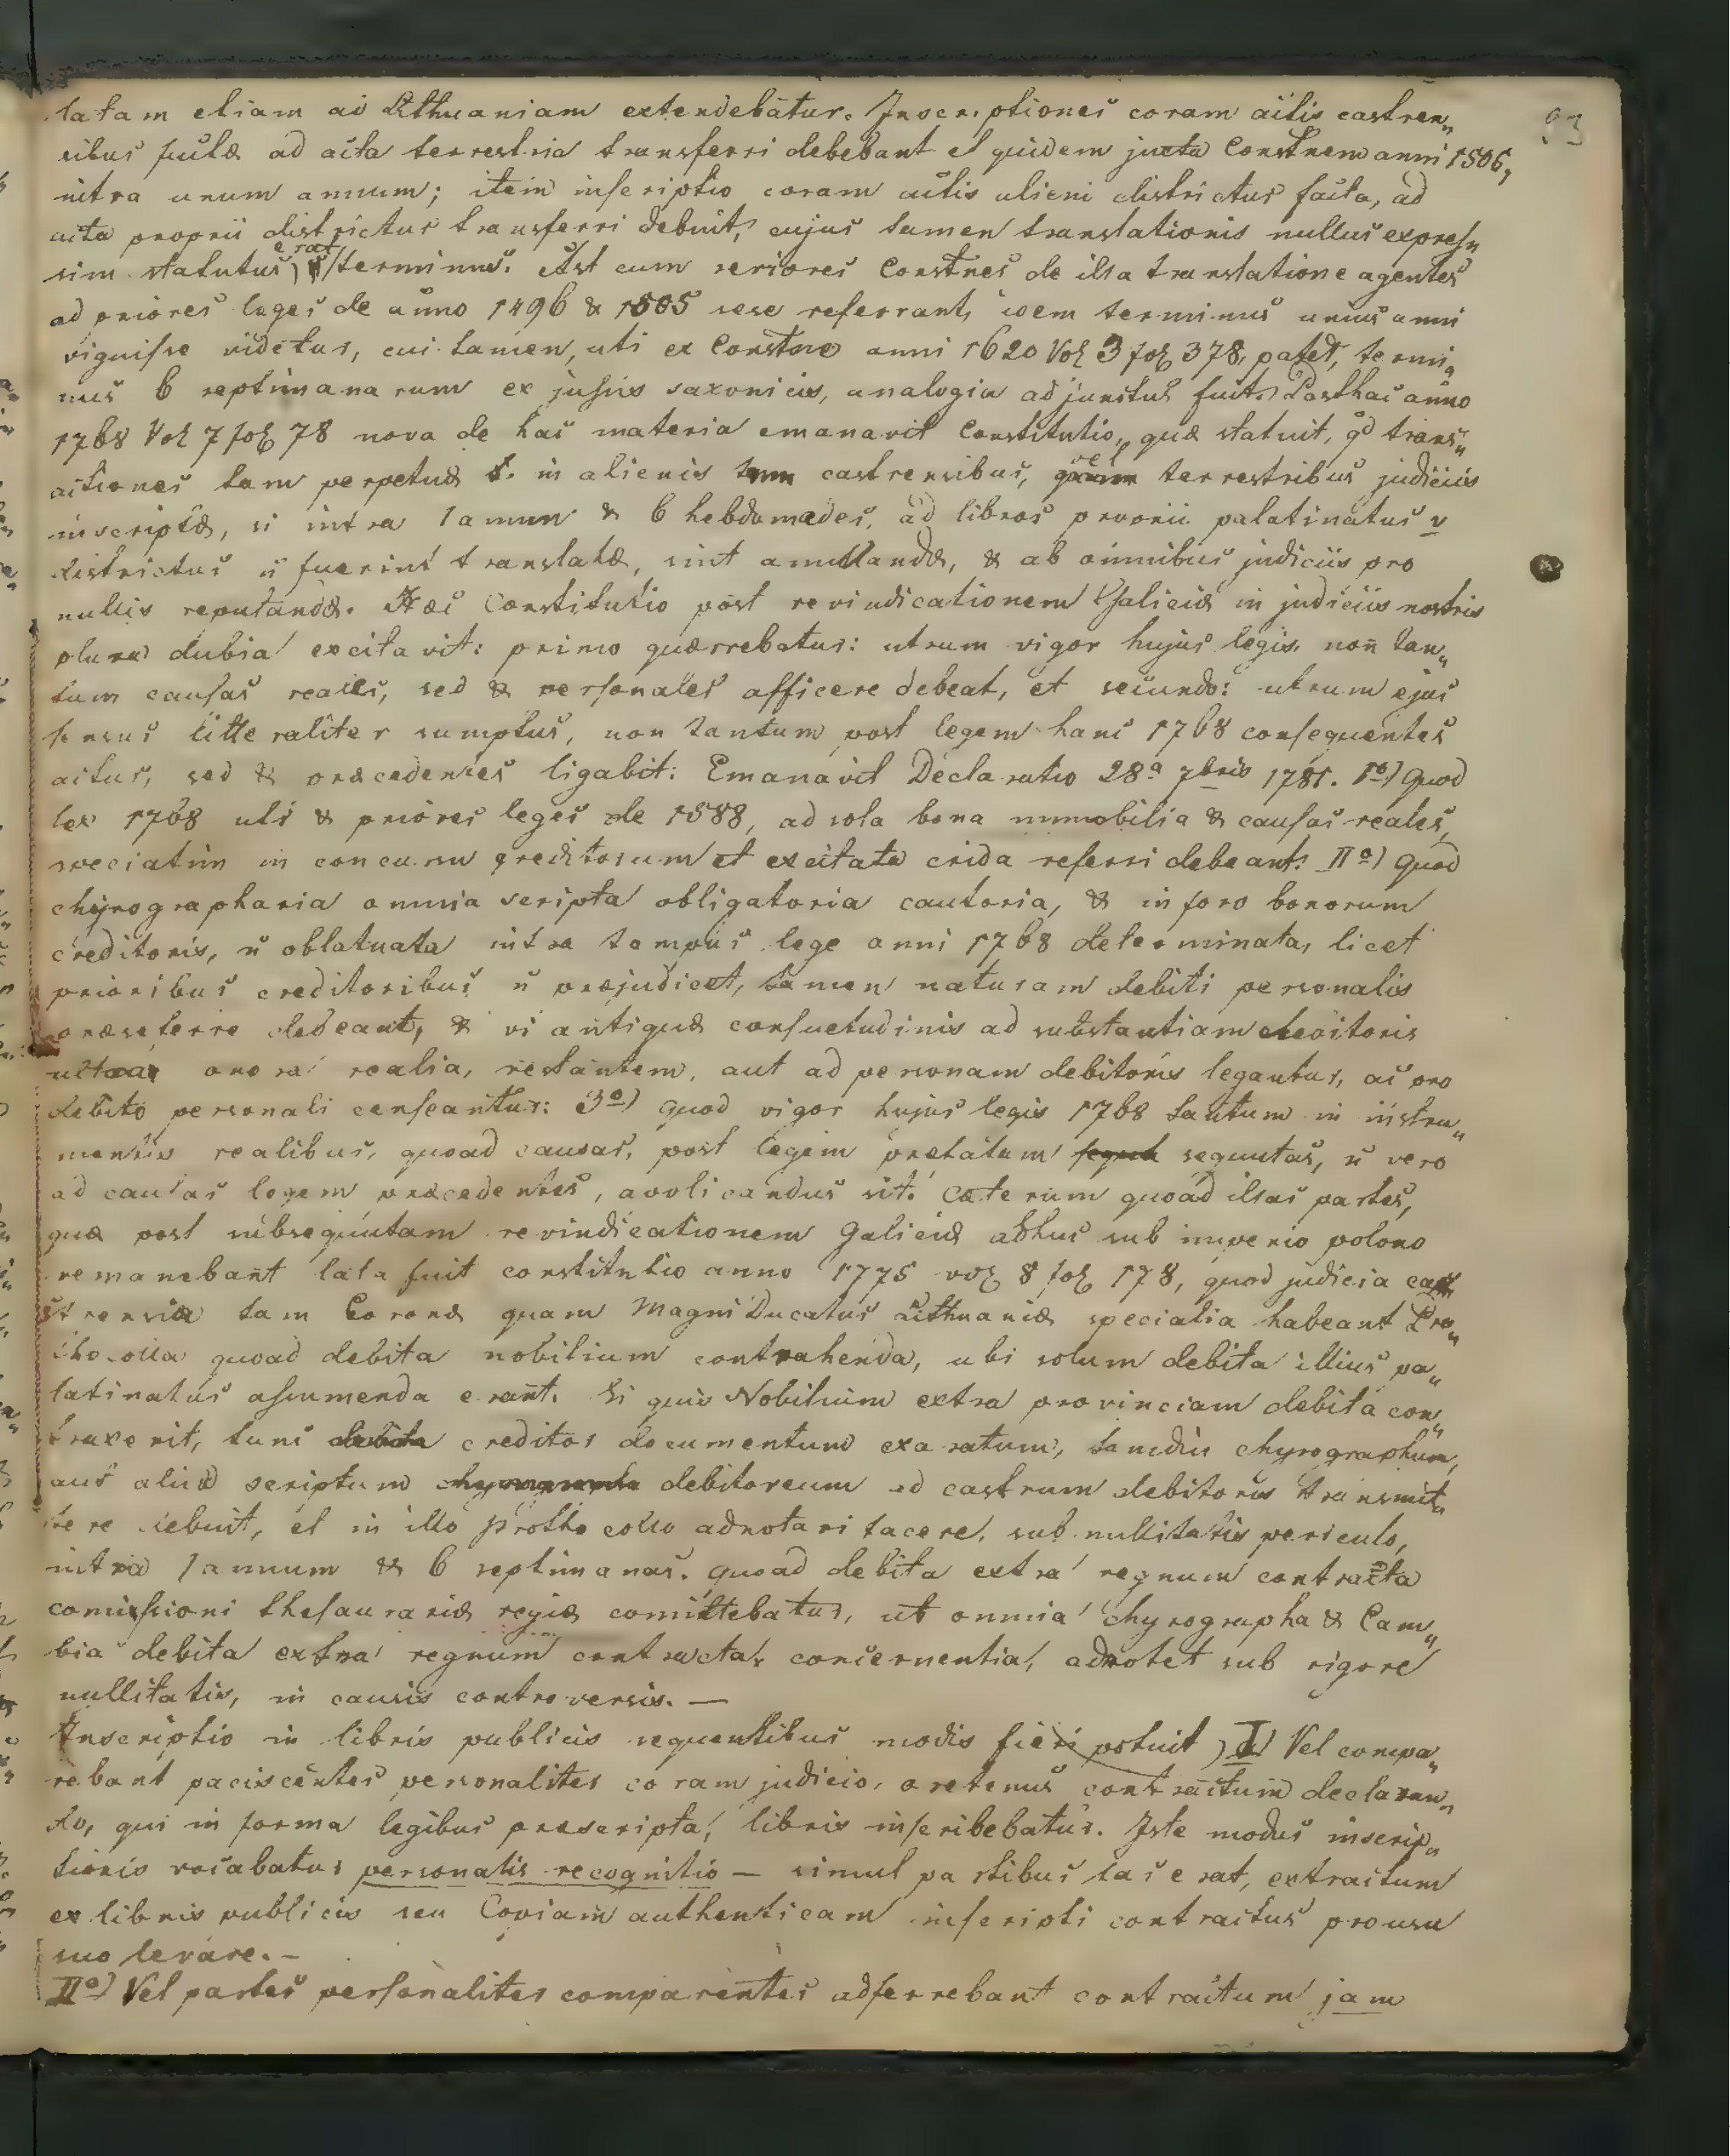 93
latam etiam ad Lithuaniam extendebatur. Inscriptiones coram actis castren„
sibus factæ ad acta terrestria transferri debebant et quidem juxta Constnem anni 1505,
intra unum annum; item inscriptio coram actis alieni districtus facta, ad
acta proprii districtus transferri debuit, cujus tamen translationis nullus expres„
sim statutus erat terminus. Ast cum seriores Constnes de illa translatione agentes
ad priores leges de anno 1496 & 1505 sese referrant, idem terminus unius anni
viguisse videtur, cui tamen, uti ex Constne anni 1620 Vol 3 fol 378, patet, termi„
nus 6 septimanarum ex juris saxonicis, analogia adjunctus fuit. Posthac anno
1768 Vol 7 fol 78 nova de hac materia emanavit Constitutio, quæ statuit, qd trans„
actiones tam perpetuæ in alienis castrensibus, vel terrestribus judiciis
inscriptæ, si intra 1 annum & 6 hebdomades, ad libros proprii palatinatus v
districtus ñ fuerint translatæ, sint annullandæ, & ab omnibus judiciis pro
nullis reputandæ. Hæc Constitutio post revindicationem Galiciæ in judiciis nostris
plura dubia excitavit: primo quærrebatur: utrum vigor hujus legis, non tan„
tum causas reales, sed & personales afficere debeat, et secundo: utrum ejus
sensus litteraliter sumptus, non tantum post legem hanc 1768 consequentes
actus, sed & præcedentes ligabit: Emanavit Declaratio 28a 7bris 1781. 1o) Quod
lex 1768 uti & priores leges de 1588, ad sola bona immobilia & causas reales,
speciatim in concursu creditorum et excitata crida referri debeant. IIo) Quod
chyrographaria omnia scripta obligatoria cautoria, & in foro bonorum
creditoris, ñ oblatuata intra tempus lege anni 1768 determinata, licet
prioribus creditoribus ñ præjudicet, tamen naturam debiti personalis
præseferre debeant, & vi antiquæ consuetudinis ad substantiam debitoris
ultra onora realia, restantem, aut ad personam debitoris legantur, ac pro
debito personali censeantur: 3o) quod vigor hujus legis 1768 tantum in instru„
mentis realibus, quoad causas, post legem prælatam sequutas, ñ vero
ad causas legem præcedentes, applicandus sit. Cæterum quoad illas partes,
quæ post subsequutam revindicationem Galiciæ adhuc sub imperio polono
remanebant lata fuit constitutio anno 1775 vol 8 fol 178, quod judicia ca„
strensia tam Coronæ quam Magni Ducatus Lithuaniæ specialia habeant Pro„
thocolla quoad debita nobilium contrahenda, ubi solum debita illius pa„
latinatus assumenda erant. Si quis Nobilium extra provinciam debita con„
traxerit, tunc creditor documentum exaratum, tamdiu chyrographum,
aut aliud scriptum debitoreum ad castrum debitoris transmit„
tere debuit, et in illo prothocollo adnotari facere, sub nullitatis periculo,
intra 1 annum & 6 septimanas. quoad debita extra regnum contracta
comissioni thesaurariæ regiæ comittebatur, ut omnia chyrographa & Cam„
bia debita extra regnum contracta, concernentia, adnotet sub rigore
nullitatis, in causis controversis. —
Inscriptio in libris publicis sequentibus modis fieri potuit, I) Vel compa„
rebant paciscentes personaliter coram judicio, oretenus contractum declaran„
do, qui in forma legibus præscripta, libris inscribebatur. Iste modus inscrip„
tionis vocabatur personalis recognitio — simul partibus fas erat, extractum
ex libris publicis seu Copiam authenticam inscripti contractus pro usu
suo levare. —
IIo) Vel partes personaliter comparentes adferrebant contractum jam